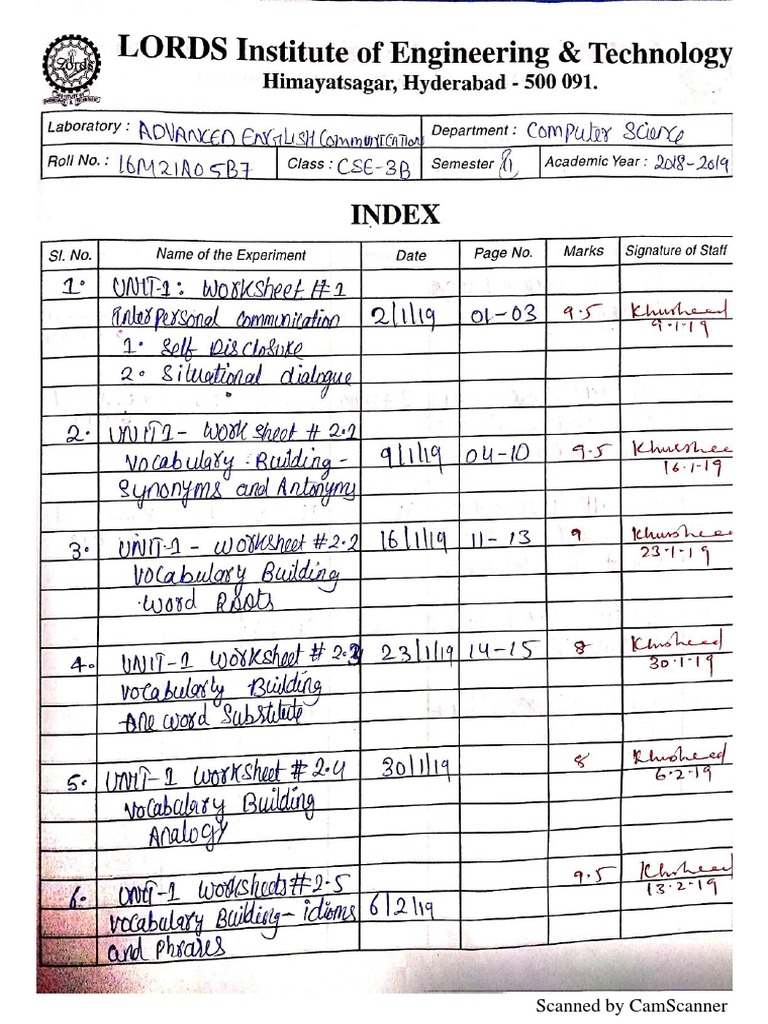 LORDS Institute of Engineering & Technology
Himayatsagar, Hyderabad - 500 091.
Laboratory : ADVANCED ENGLISH COMMUNICATION Department : Computer Science
Roll No. : 16M21A05B7 Class : CSE-3B Semester II Academic Year : 2018-2019
INDEX
Sl. No. Name of the Experiment Date Page No. Marks Signature of Staff
1. UNIT-1: Worksheet #1
Interpersonal communication 2/1/19 01-03 9.5 Khursheed
1. Self Disclosure 9.1.19
2. Situational dialogue
2. UNIT1- Work sheet # 2.1
Vocabulary Building- 9/1/19 04-10 9.5 Khurshee
Synonyms and Antonyms 16.1.19
3. UNIT-1 - Worksheet #2.2 16/1/19 11-13 9 Khursheed
Vocabulary Building 23.1.19
Word Roots
4. UNIT-1 Worksheet # 2.3 23/1/19 14-15 8 Khursheed
Vocabularly Building 30.1.19
One word Substitute
5. UNIT-1 Worksheet # 2.4 30/1/19 8 Khursheed
Vocabulary Building 6.2.19
Analogy
6. UNIT-1 Worksheets #2.5 9.5 Khursheed
Vocabulary Building- idioms 6/2/19 13.2.19
and Phrases
Scanned by CamScanner